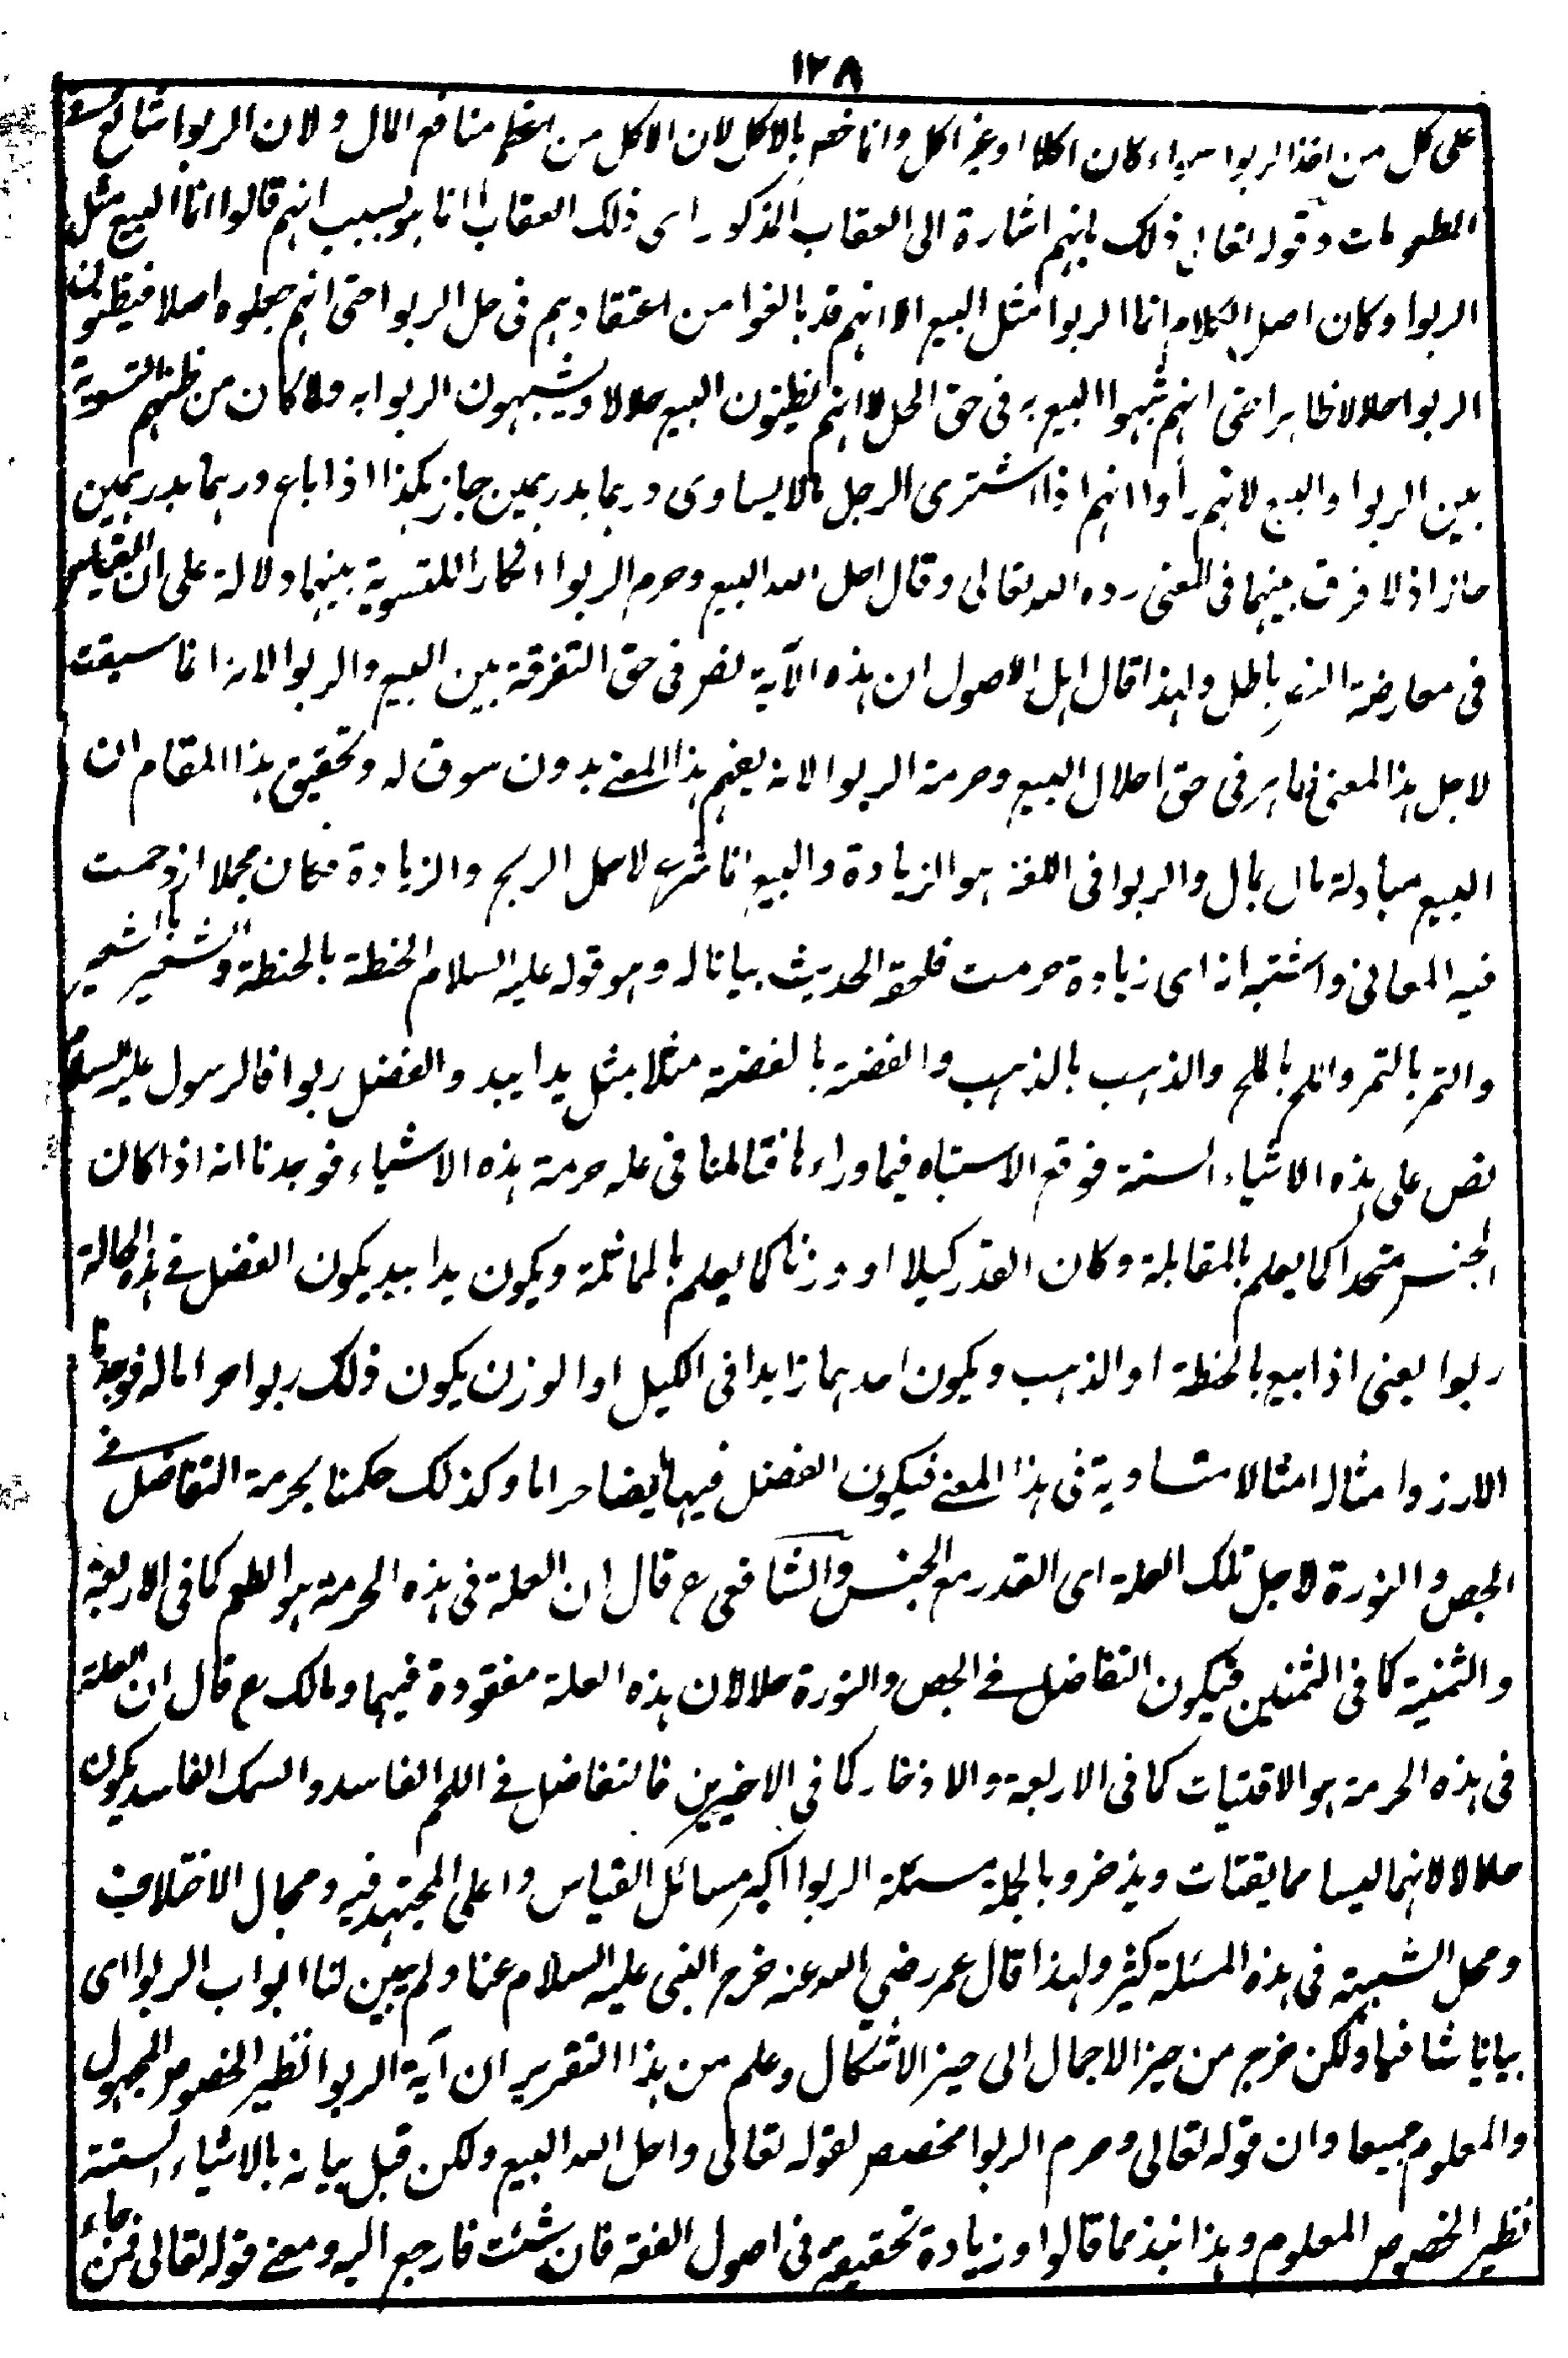 ١٢٨
على كل من اخذ الربوا سواء كان اكلا او غير اكل وانما خصه بالاكل لان الاكل من اعظم منافع المال ولان الربوا شائع في
المطعومات وقوله تعالى ذلك بانهم اشارة الى العقاب المذكور اى ذلك العقاب انما هو بسبب انهم قالوا انما البيع مثل
الربوا وكان اصل الكلام انما الربوا مثل البيع الا انهم قد بالغوا من اعتقادهم فى حل الربوا حتى انهم جعلوه اصلا فيظنون ان
الربوا حلالا ظاهرا حتى انهم شبهوا البيع به فى حق الحل لا انهم يظنون البيع حلالا ويشبهون الربوا به ولما كان من ظنهم التسوية
بين الربوا والبيع لانهم رأوا انهم اذا اشترى الرجل ما لا يساوى درهما بدرهمين جاز هكذا اذا باع درهما بدرهمين
جاز اذ لا فرق بينهما فى المعنى رده الله تعالى وقال احل الله البيع وحرم الربوا انكارا للتسوية بينهما ودلالة على ان القياس
فى معارضة النص باطل ولهذا قال اهل الاصول ان هذه الآية نص فى حق التفرقة بين البيع والربوا لانه انما سيقت
لاجل هذا المعنى ظاهر فى حق احلال البيع وحرمة الربوا لانه يفهم هذا المعنے بدون سوق له وتحقيق هذا المقام ان
البيع مبادلة مال بمال والربوا فى اللغة هو الزيادة والبيع انما شرع لاجل الربح والزيادة فكان مجملا ازدحمت
فيه المعانى واشتبه انه اى زيادة حرمت فلحقه الحديث بيانا له وهو قوله عليه السلام الحنطة بالحنطة والشعير بالشعير
والتمر بالتمر والملح بالملح والذهب بالذهب والفضة بالفضة مثلا بمثل يدا بيد والفضل ربوا فالرسول عليه السلام
نص على هذه الاشياء الستة فوقع الاشتباه فيما وراءها فتأملنا فى علة حرمة هذه الاشياء فوجدنا انه اذا كان
الجنس متحدا كما يعلم بالمقابلة وكان القدر كيلا او وزنا كما يعلم بالمماثلة ويكون يدا بيد يكون الفضل فے هذه الحالة
ربوا يعنى اذا بيع بالحنطة او الذهب ويكون احدهما زايدا فى الكيل او الوزن يكون ذلك ربوا حراما له فوجدنا
الارز وامثاله امثالا متساوية فى هذا المعنے فيكون الفضل فيها ايضا حراما وكذلك حكمنا بحرمة التفاضل فے
الجص والنورة لاجل تلك العلة اى القدر مع الجنس والشافعى رح قال ان العلة فى هذه الحرمة هو الطعم كما فى الاربعة
والثمنية كما فى الثمنين فيكون التفاضل فے الجص والنورة حلالا لان هذه العلة مفقودة فيهما ومالك رح قال ان العلة
فى هذه الحرمة هو الاقتيات كما فى الاربعة والادخار كما فى الاخيرين فالتفاضل فے اللحم الفاسد والسمك الفاسد يكون
حلالا لانهما ليسا مما يقتات ويدخر وبالجملة مسئلة الربوا اكبر مسائل القياس واعلى المجتهد فيه ومجال الاختلاف
ومحل الشبهة فى هذه المسئلة كثير ولهذا قال عمر رضي الله عنه خرج النبى عليه السلام عنا ولم يبين لنا ابواب الربوا اى
بيانا شافيا ولكن خرج من حيز الاجمال الى حيز الاشكال وعلم من هذا التقرير ان آية الربوا نظير الخصوص المجهول
والمعلوم جميعا وان قوله تعالى وحرم الربوا مخصص لقوله تعالى واحل الله البيع ولكن قبل بيانه بالاشياء الستة
نظير الخصوص المعلوم وهذا نبذ مما قالوا وزيادة تحقيقه فى اصول الفقه فان شئت فارجع اليه ومعنے قوله تعالى فمن جاء